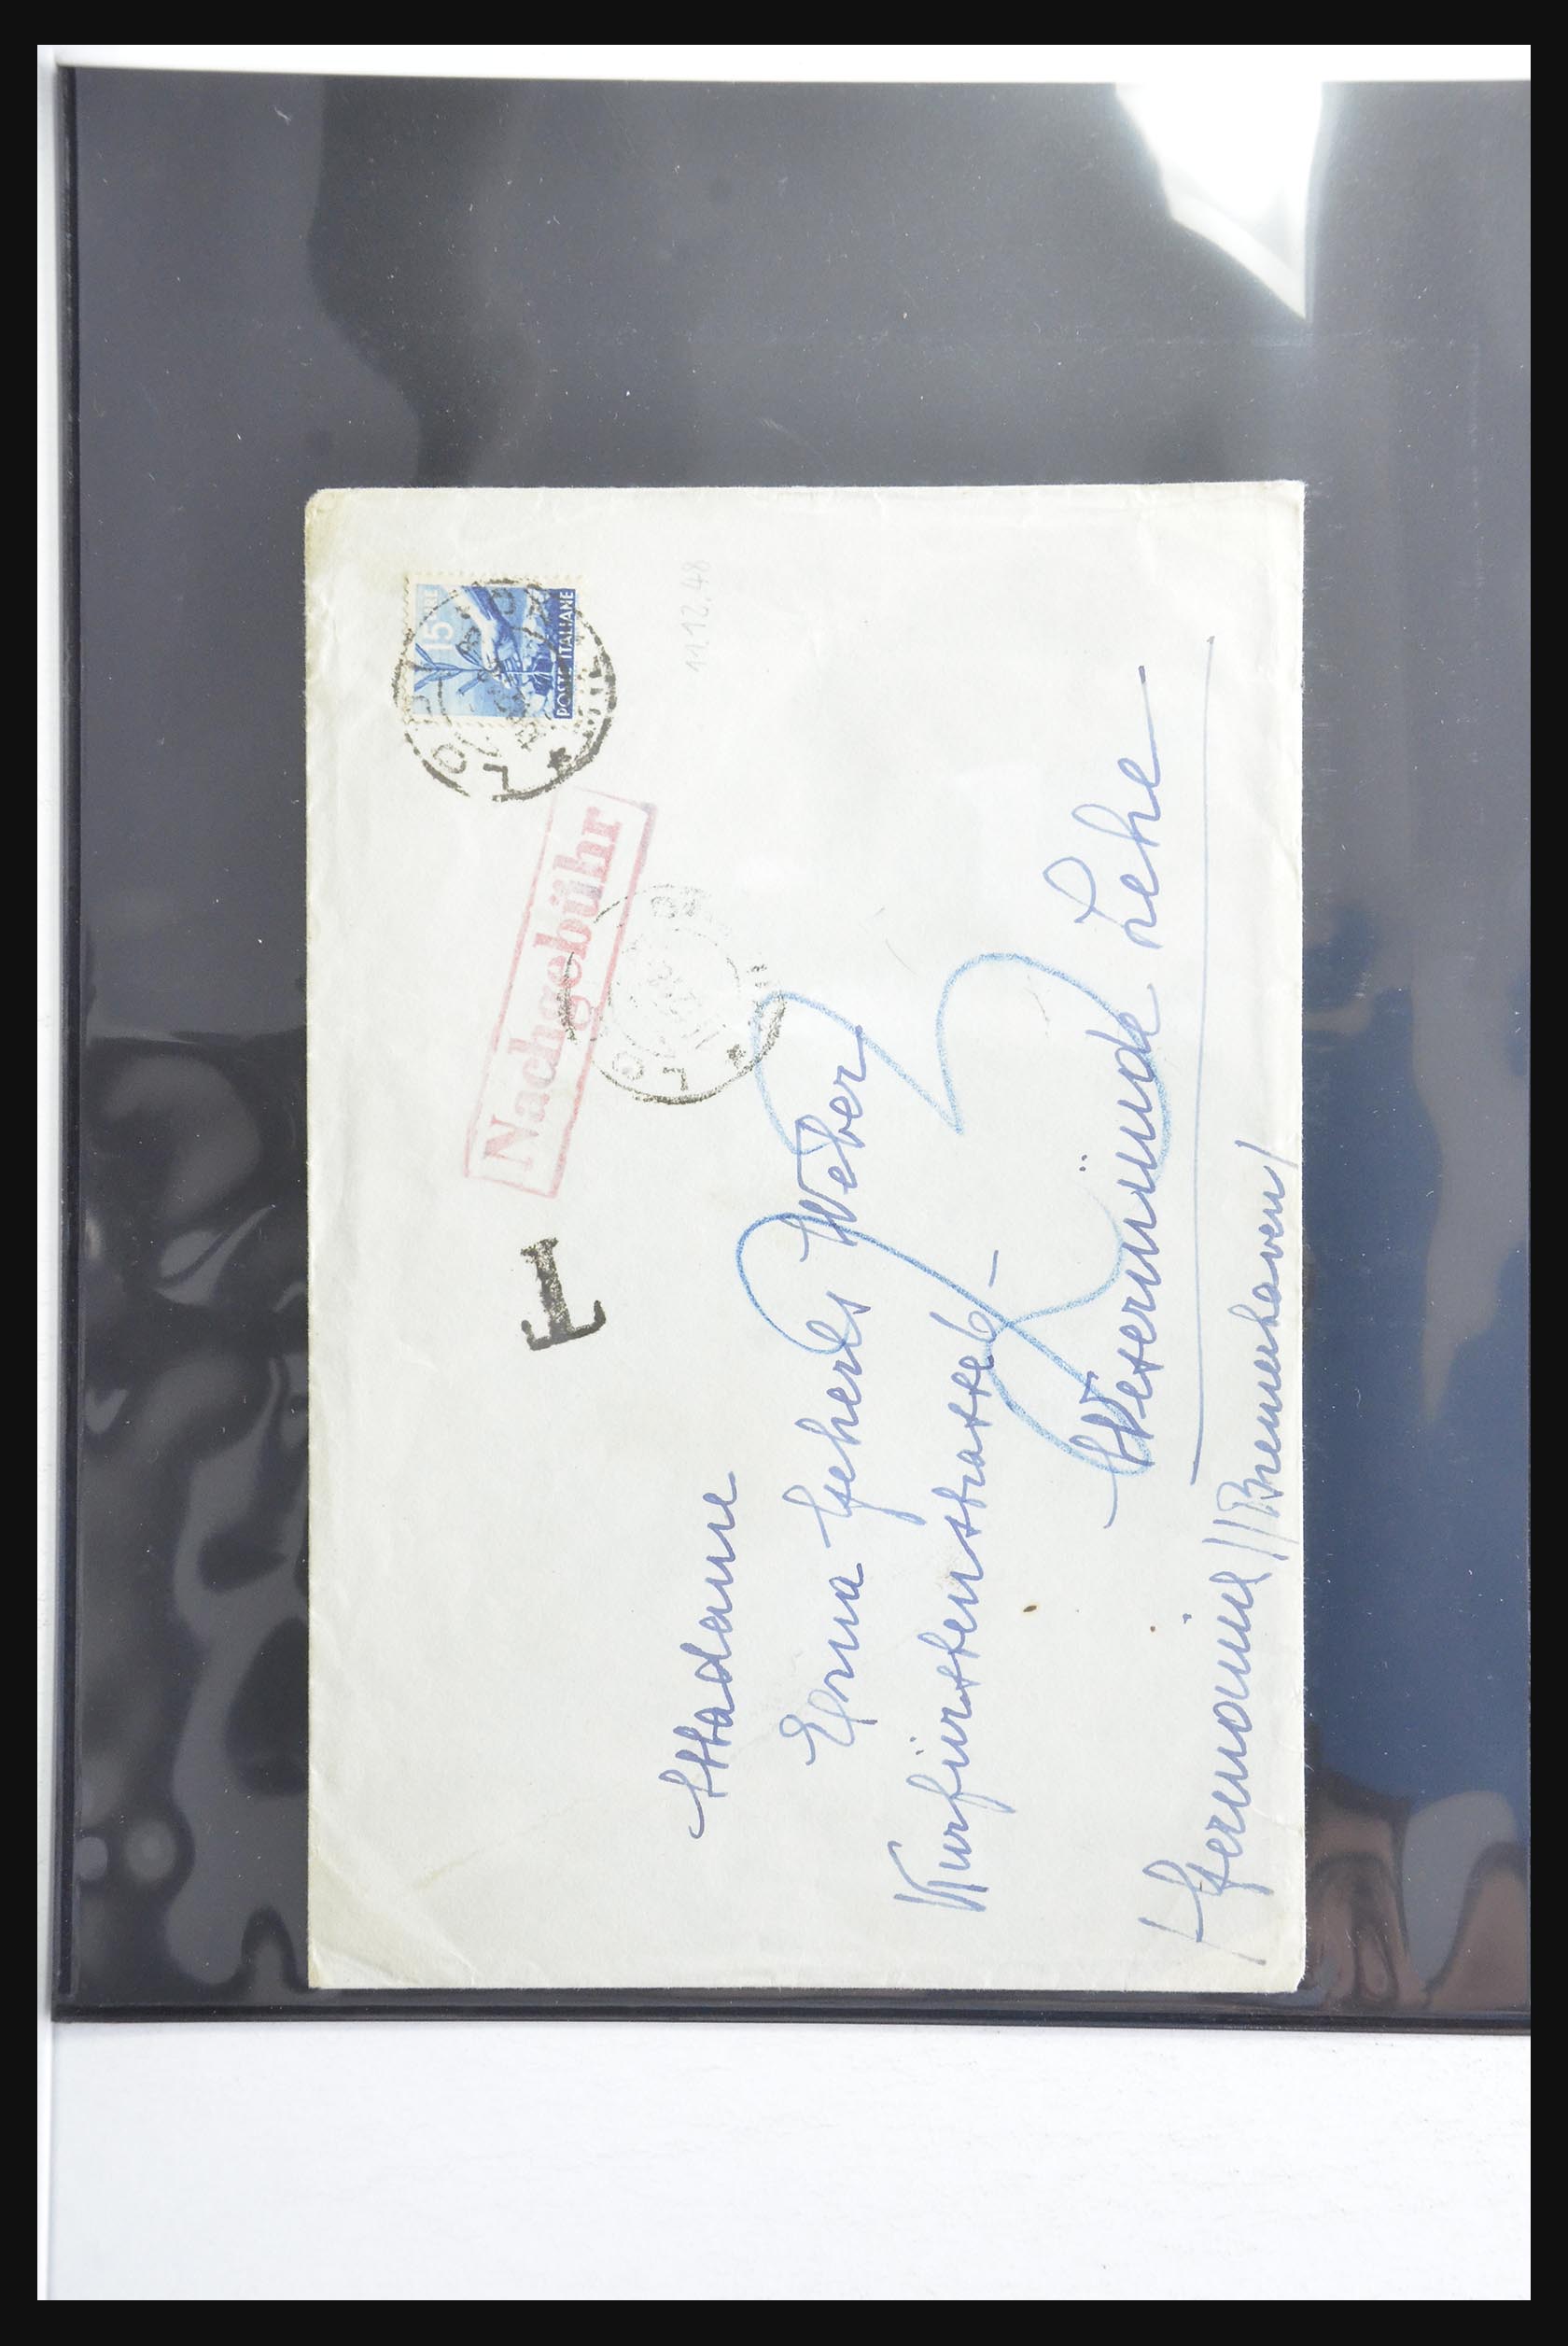 15 LIRE
POSTE ITALIANE
11.12.48
Nachgebühr
T
Madame
Erna Geherls Weber
Kurfürstenstrasse 6
Wesermünde Lehe
/Germania/ /Bremerhaven/